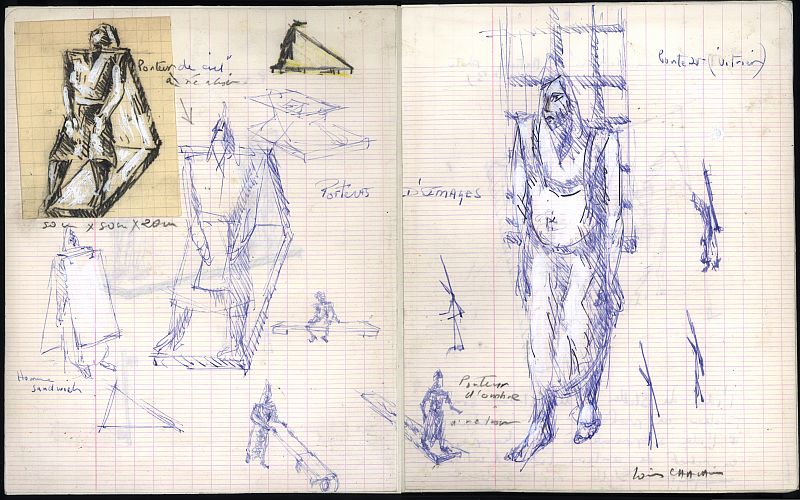 "Porteur de ciel"
à réaliser
50 cm x 50 cm x 20 cm
Porteurs D'IMAGES
Homme
sandwich
Porteur (vitrier)
Porteur
d'ombre
à réaliser